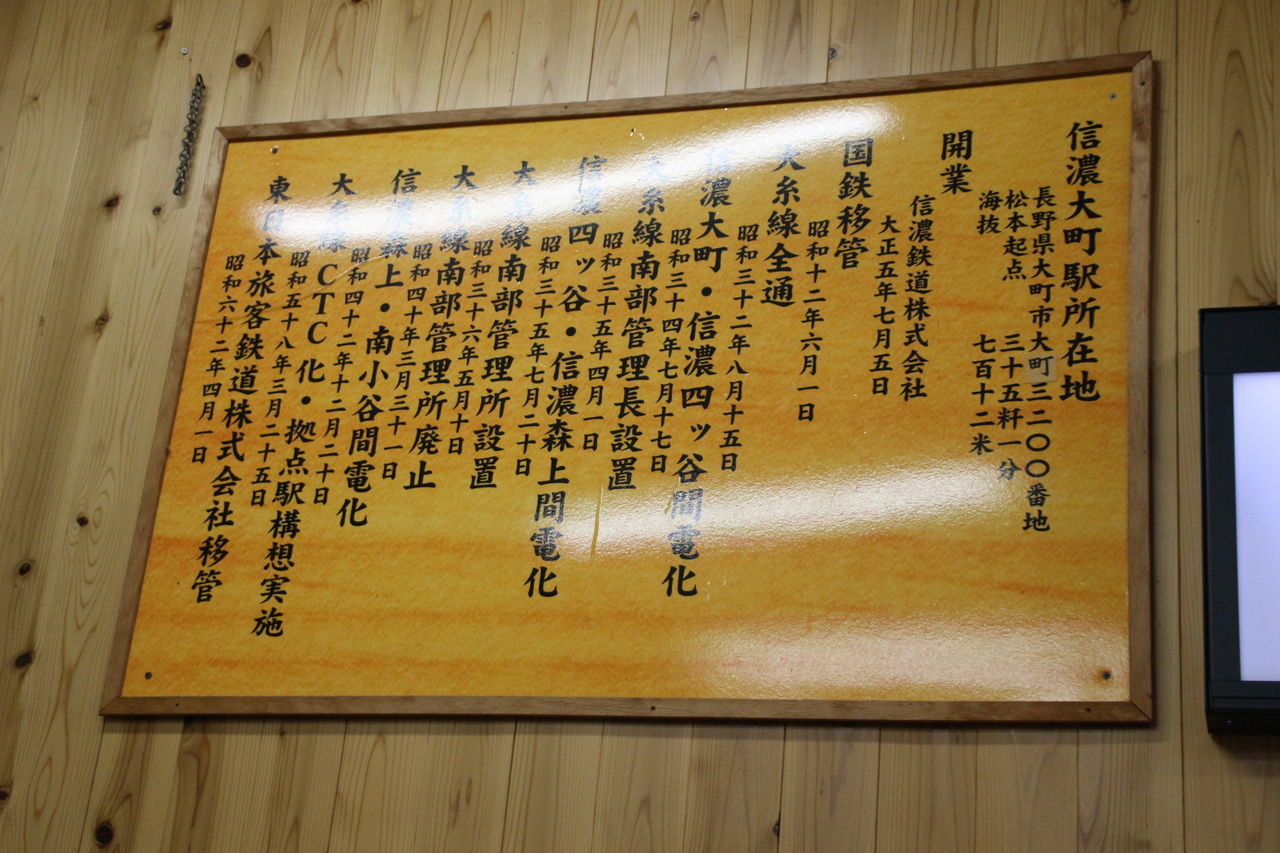 信濃大町駅所在地
長野県大町市大町三二〇〇番地
松本起点 三十五粁一分
海抜 七百十二米
開業
信濃鉄道株式会社
大正五年七月五日
国鉄移管
昭和十二年六月一日
大糸線全通
昭和三十二年八月十五日
信濃大町・信濃四ッ谷間電化
昭和三十四年七月十七日
大糸線南部管理長設置
昭和三十五年四月一日
信濃四ッ谷・信濃森上間電化
昭和三十五年七月二十日
大糸線南部管理所設置
昭和三十六年五月十日
大糸線南部管理所廃止
昭和四十年三月三十一日
信濃森上・南小谷間電化
昭和四十二年十二月二十日
大糸線CTC化・拠点駅構想実施
昭和五十八年三月二十五日
東日本旅客鉄道株式会社移管
昭和六十二年四月一日